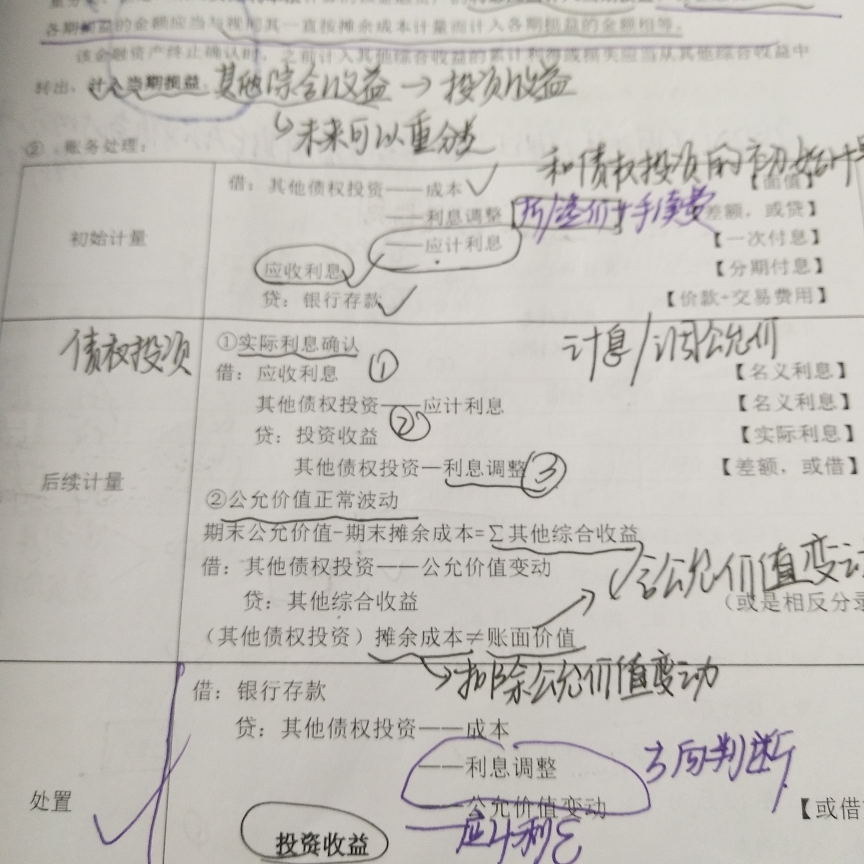 各期损益的金额应当与视同其一直按摊余成本计量而计入各期损益的金额相等。
该金融资产终止确认时，之前计入其他综合收益的累计利得或损失应当从其他综合收益中
转出，计入当期损益。其他综合收益→投资收益
↳未来可以重分类
② 账务处理：
和债权投资的初始计量
借：其他债权投资——成本 【面值】
——利息调整 折/溢价+手续费 差额，或贷】
初始计量
——应计利息 【一次付息】
应收利息 【分期付息】
贷：银行存款 【价款+交易费用】
债权投资
①实际利息确认 计息/调公允价
借：应收利息 ① 【名义利息】
其他债权投资——应计利息 【名义利息】
贷：投资收益 ② 【实际利息】
其他债权投资—利息调整 ③ 【差额，或借】
后续计量
②公允价值正常波动
期末公允价值-期末摊余成本=∑其他综合收益
借：其他债权投资——公允价值变动
含公允价值变动
贷：其他综合收益 （或是相反分录
（其他债权投资）摊余成本≠账面价值
扣除公允价值变动
借：银行存款
贷：其他债权投资——成本
——利息调整 方向判断
处置
——公允价值变动 【或借
投资收益 —应计利息